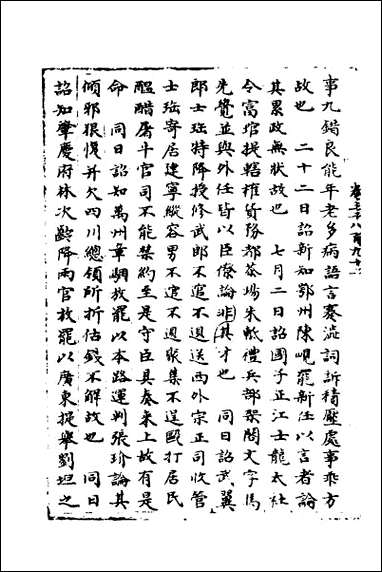 卷三千八百九十一
事九錯良能年老多病語言蹇澁詞訴積壓處事乖方
故也　二十二日詔新知鄂州陳峴罷新任以言者論
其累政無狀故也　七月二日詔國子正江士龍太社
令富琯提轄榷貨務都茶場朱軧禮兵部架閣文字馬
先覺並與外任皆以臣僚論非其才也　同日詔武翼
郎士珸特降授修武郎不𢓭不迴送西外宗正司收管
士珸寄居建寧縱容男不𢓭不迴聚集不逞毆打居民
醖醋屠斗官司不能禁約至是守臣具奏來上故有是
命　同日詔知萬州章騆放罷以本路運判張玠論其
傾邪狠愎并欠四川總領所折估錢不解故也　同日
詔知肇慶府林次齡降兩官放罷以廣東提舉劉坦之